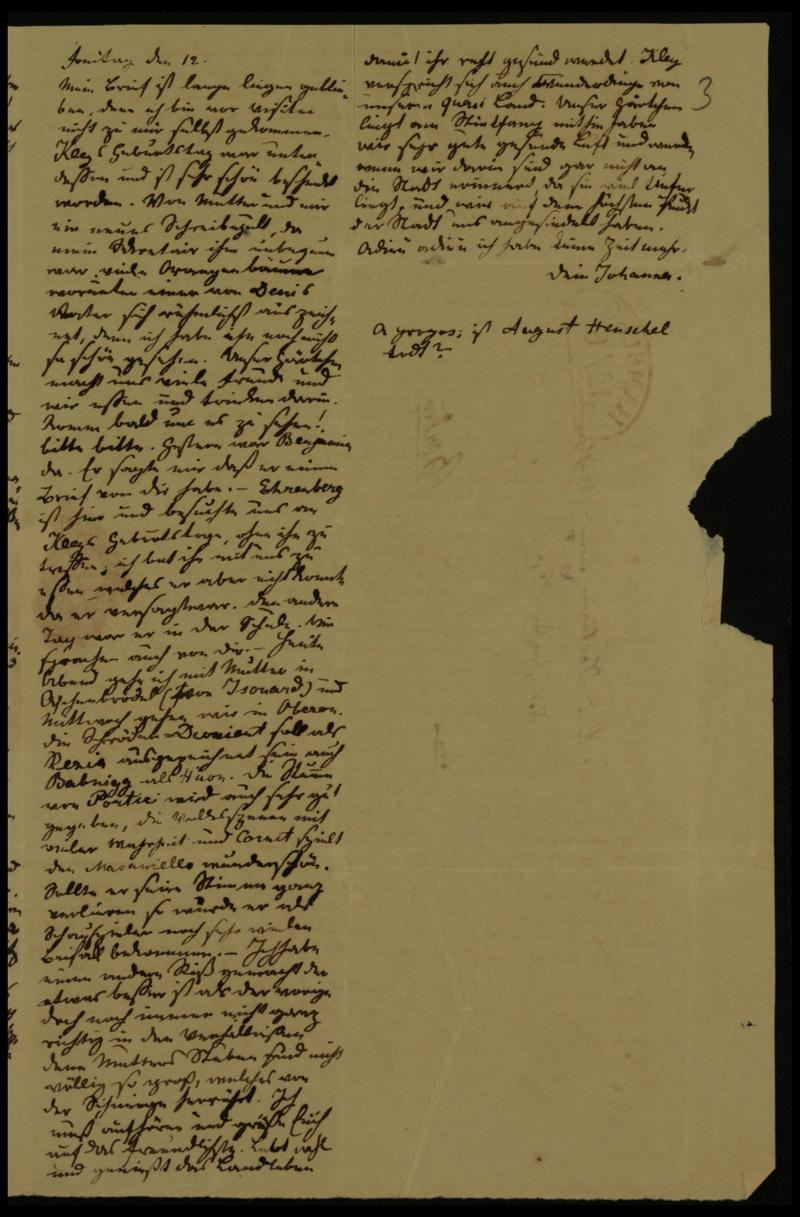 Freitag den 12.
Mein Brief ist lange liegen geblie-
ben, denn ich bin vor Visiten
nicht zu mir selbst gekommen.
Kleys Geburtstag war unter
dessen und ist sehr schön beschenkt
worden. Von Mutter und mir
ein neues Schreibepult, da
mein Secretair ihm unbequem
war, viele Orangenbäume
worunter einer von Denis
sich rühmlichst auszeich-
net, denn ich habe ihn noch nicht
so schön gesehen. Unser Gärtchen
macht uns viele Freude und
wir essen und trinken darin.
Komm bald um es zu sehen!
bitte bitte. Gestern war Benjamin
da. Er sagte mir daß er einen
Brief von dir habe. – Ehrenberg
ist hier und besuchte uns an
Kleys Geburtstage, ohne ihn zu
treffen; ich bat ihn mit uns zu
essen welches er aber nicht konnte
da er versagt war. Den andern
Tag war er in der Schule. Wir
sprachen auch von dir. – Heute
Abend gehe ich mit Mutter in
Aschenbrödel (von Isouard) und
Mittwoch gehen wir in Oberon.
die Schröder-Devrient soll als
Rezia ausgezeichnet sein auch
Babnigg als Hüon. Die Stumme
von Portici wird auch sehr gut
gegeben, die Volksszenen mit
vieler Wahrheit und Cornet spielt
den Masaniello wunderschön.
Sollte er seine Stimme ganz
verlieren so würde er als
Schauspieler noch sehr vielen
Beifall bekommen. – Ich habe
einen andern Riß gemacht der
etwas besser ist als der vorige
doch noch immer nicht ganz
richtig in den Verhältnissen
denn Mutters Stuben sind nicht
völlig so groß, welches von
der herrührt. Ich
muß aufhören und grüße Euch
auf das Freundlichste. Lebt wohl
und genießt das Landleben
damit ihr recht gesund werdet. Kley
verspricht sich auch Wunderdinge von
unserm quasi Land. Unser Gärtchen
liegt am Stintfang mithin haben
wir sehr gute gesunde Luft und werden
wenn wir darin sind gar nicht an
die Stadt erinnert, da sie uns
liegt, und wir auf dem höchsten Punkt
der Stadt uns angesiedelt haben.
Adieu adieu ich habe keine Zeit mehr.
Dein Johannes.
A propos; ist August Henschel
todt?
3